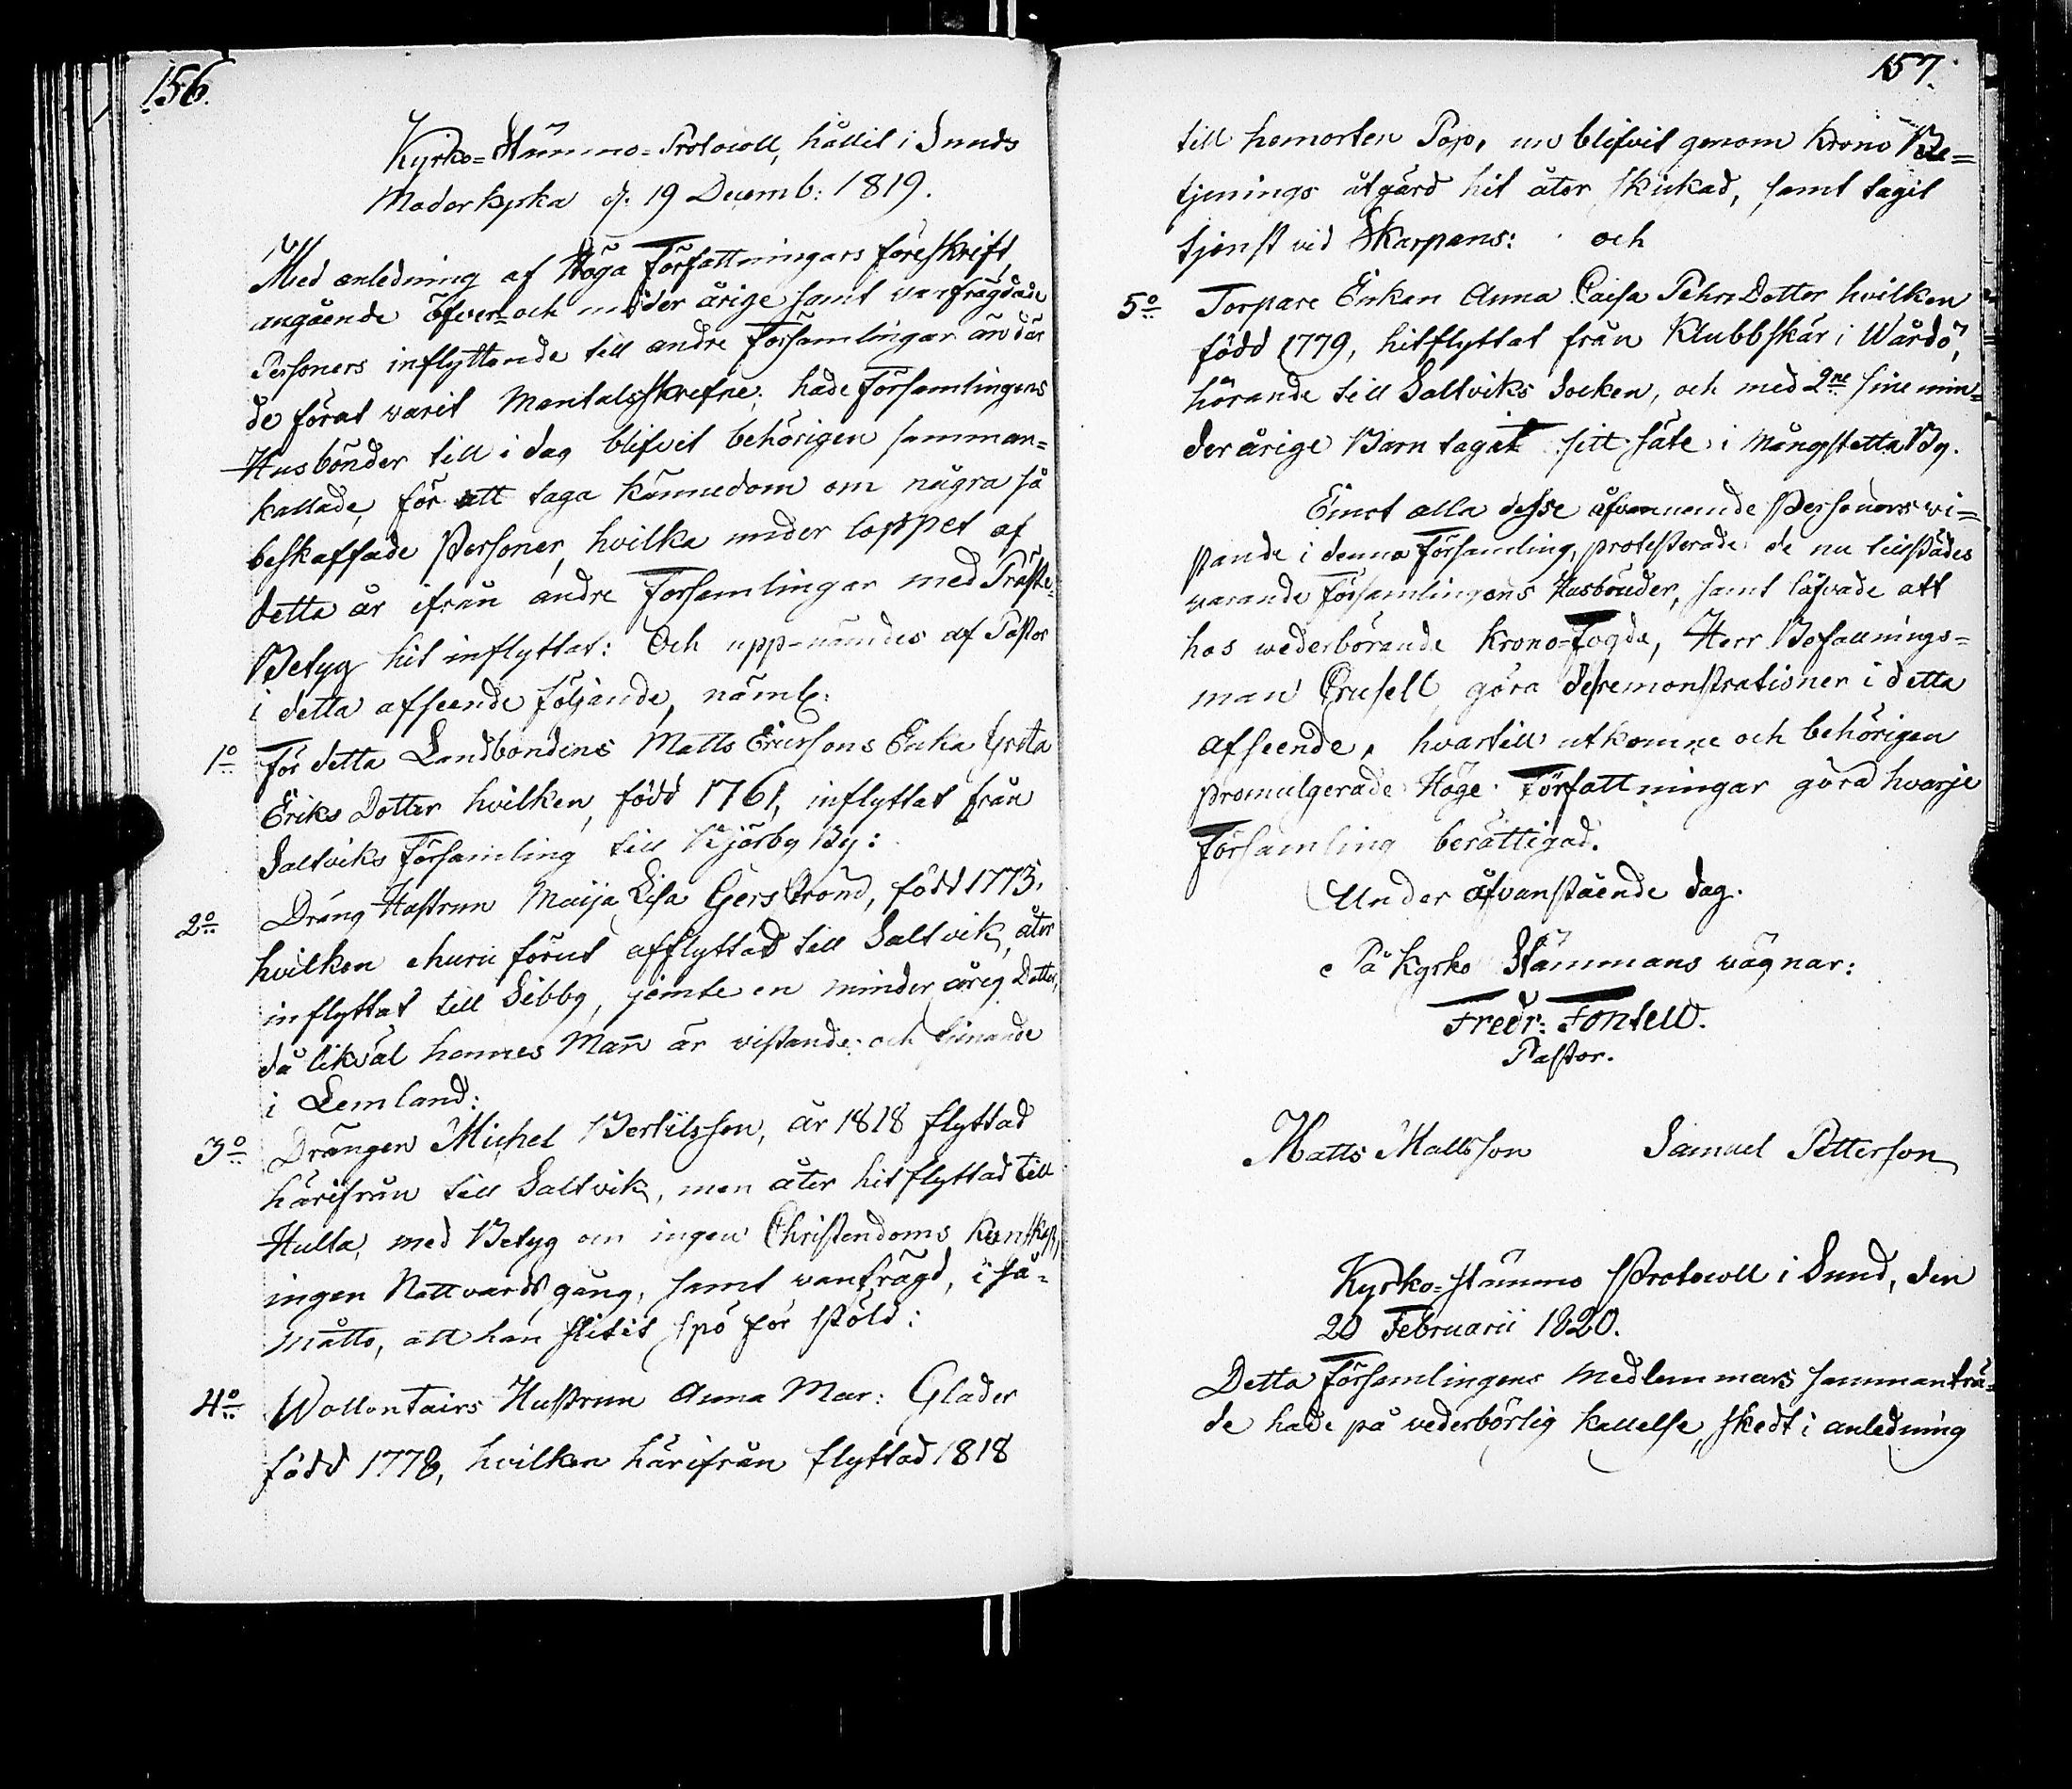 156.
Kyrko=Stämmo=Protocoll, hållit i Sunds
Moderkyrka d. 19 Decemb: 1819.
Med anledning af Höga Författningars föreskrift,
angående öfver= och under årige samt vanfrägdade
Personers inflyttande till andre Församlingar än där
de förut varit Mantalsskrefne; hade Församlingens
Husbönder till i dag blifvit behörigen samman=
kallade, för att taga kännedom om några så
beskaffade Personer, hvilka under loppet af
detta år ifrån andre Församlingar med Präste=
Betyg hit inflyttat: Och upp-nämdes af Pastor
i detta afseende följande, näml:
1o För detta Landbondens Matts Ericssons Enka Greta
Eriks Dotter hvilken, född 1761, inflyttat från
Saltviks Församling till Kjörby By:
2o Dräng Hustrun Maija Lisa Gerstrond, född 1773,
hvilken ehuru förut afflyttad till Saltvik, åter
inflyttat till Sibby, jemte en minder årig Dotter,
då likväl hennes Man är vistande och tjenande
i Lemland:
3o Drängen Michel Bertilsson, år 1818 flyttad
härifrån till Saltvik, men åter hitflyttad till
Hulta, med Betyg om ingen Christendoms kunskap,
ingen Nattvards gång, samt vanfrägd, i så=
måtto, att han slitit spö för stöld:
4o Wollontairs Hustrun Anna Mar: Glader
född 1778, hvilken härifrån flyttad 1818
157.
till hemorten Pop, nu blifvit genom Krono Be=
tjenings åtgärd hit åter skickad, samt tagit
tjenst vid Skarpans: och
5o Torpare Enkan Anna Caisa Pehrs Dotter hvilken
född 1779, hitflyttat från Klubbskär i Wårdö,
hörande till Saltviks Socken, och med 2ne sine min=
der årige Barn tagit sitt säte i Mångstekta By.
Emot alla desse åfvannemnde Personers vi=
stande i denna Församling, protesterade de nu tillstädes
varande Församlingens Husbönder, samt låfvade att
hos wederbörande Krono=Fogde, Herr Befallnings=
man Crusell göra de remonstrationer i detta
afseende, hvartill utkomne och behörigen
promulgerade Höge Författningar göra hvarje
Församling berättigad.
Under åfvanstående dag.
På Kyrko Stämmans vägnar:
Fredr: Fontell.
Pastor.
Matts Mattsson Samuel Petterson
Kyrko=stämmo Protocoll i Sund, den
20 Februarii 1820.
Detta Församlingens Medlemmars sammanträ=
de hade på vederbörlig kallelse, skedt i anledning